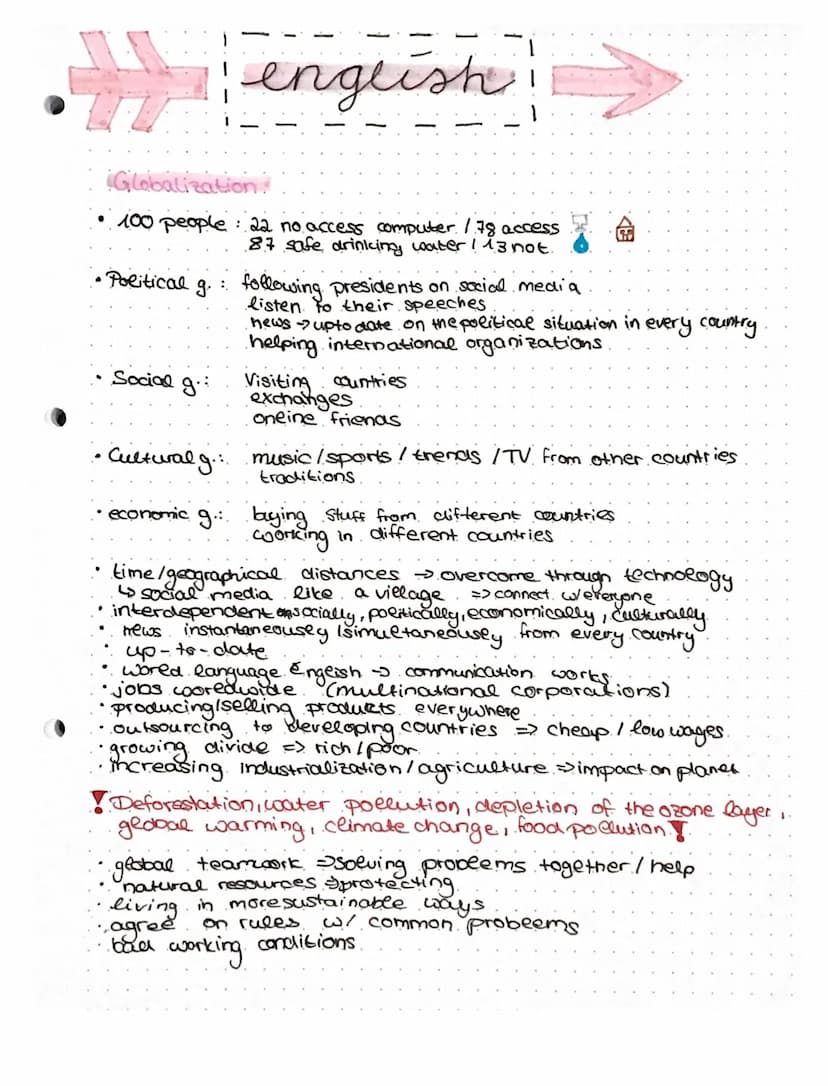 english
Globalization
• 100 people : 22 no access computer / 78 access
87 safe drinking water / 13 not
• Political g. : following presidents on social media
listen to their speeches
news → up to date on the political situation in every country
helping international organizations
• Social g.: Visiting countries
exchanges
online friends
• Cultural g.: music / sports / trends / TV from other countries
traditions
• economic g.: buying stuff from different countries
working in different countries
• time/geographical distances → overcome through technology
↳ social media like a village => connect w/ everyone
• interdependent socially, politically, economically, culturally
• news instantaneously / simultaneously from every country
• up-to-date
• world language English → communication works
• jobs worldwide (multinational corporations)
• producing/selling products everywhere
• outsourcing to developing countries => cheap / low wages
• growing divide => rich / poor
• increasing industrialization / agriculture => impact on planet
! Deforestation, water pollution, depletion of the ozone layer,
global warming, climate change, food pollution !
• global teamwork => solving problems together / help
• natural resources => protecting
• living in more sustainable ways
• agree on rules w/ common problems
• bad working conditions